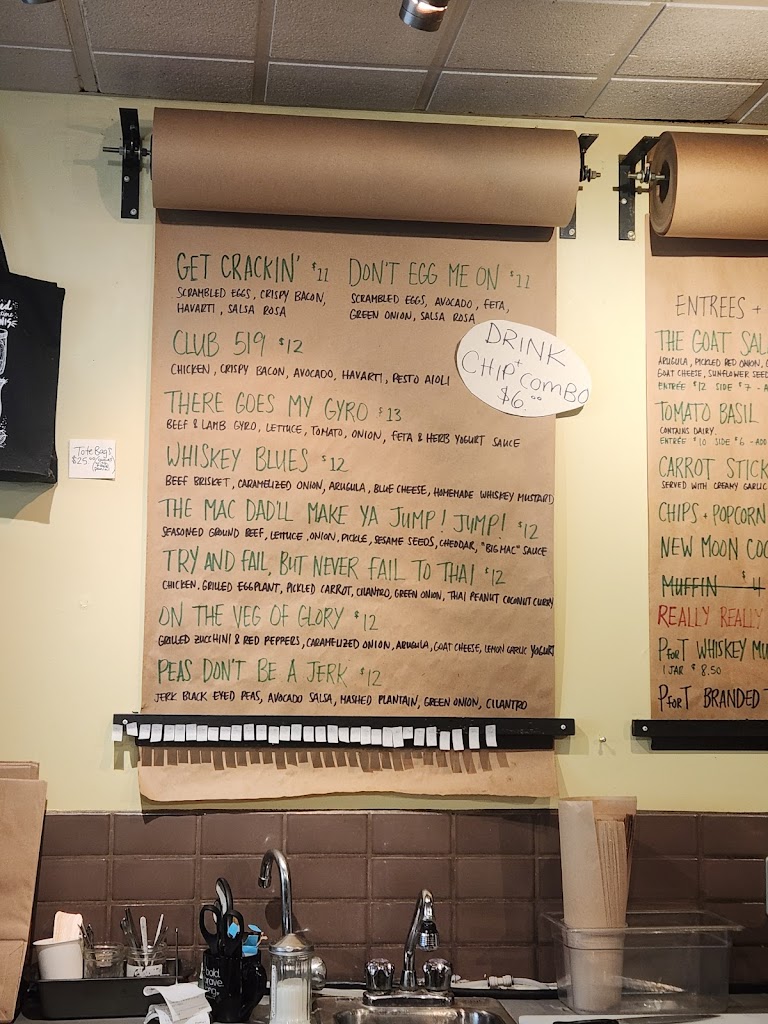 GET CRACKIN' $11
SCRAMBLED EGGS, CRISPY BACON,
HAVARTI, SALSA ROSA
DON'T EGG ME ON $11
SCRAMBLED EGGS, AVOCADO, FETA,
GREEN ONION, SALSA ROSA
DRINK
+
CHIP COMBO
$6.00
CLUB 519 $12
CHICKEN, CRISPY BACON, AVOCADO, HAVARTI, PESTO AIOLI
THERE GOES MY GYRO $13
BEEF & LAMB GYRO, LETTUCE, TOMATO, ONION, FETA & HERB YOGURT SAUCE
WHISKEY BLUES $12
BEEF BRISKET, CARAMELIZED ONION, ARUGULA, BLUE CHEESE, HOMEMADE WHISKEY MUSTARD
THE MAC DAD'LL MAKE YA JUMP! JUMP! $12
SEASONED GROUND BEEF, LETTUCE, ONION, PICKLE, SESAME SEEDS, CHEDDAR, "BIG MAC" SAUCE
TRY AND FAIL, BUT NEVER FAIL TO THAI $12
CHICKEN, GRILLED EGGPLANT, PICKLED CARROT, CILANTRO, GREEN ONION, THAI PEANUT COCONUT CURRY
ON THE VEG OF GLORY $12
GRILLED ZUCCHINI & RED PEPPERS, CARAMELIZED ONION, ARUGULA, GOAT CHEESE, LEMON GARLIC YOGURT
PEAS DON'T BE A JERK $12
JERK BLACK EYED PEAS, AVOCADO SALSA, MASHED PLANTAIN, GREEN ONION, CILANTRO
ENTREES +
THE GOAT SAL
ARUGULA, PICKLED RED ONION,
GOAT CHEESE, SUNFLOWER SEED
ENTRÉE $12 SIDE $7 - A
TOMATO BASIL
CONTAINS DAIRY
ENTRÉE $10 SIDE $6 - ADD
CARROT STICK
SERVED WITH CREAMY GARLIC
CHIPS + POPCORN
NEW MOON COO
MUFFIN $4
REALLY REALLY
PforT WHISKEY MU
1 JAR $8.50
PforT BRANDED T
Tote Bags
$25.00
bold.
brave.